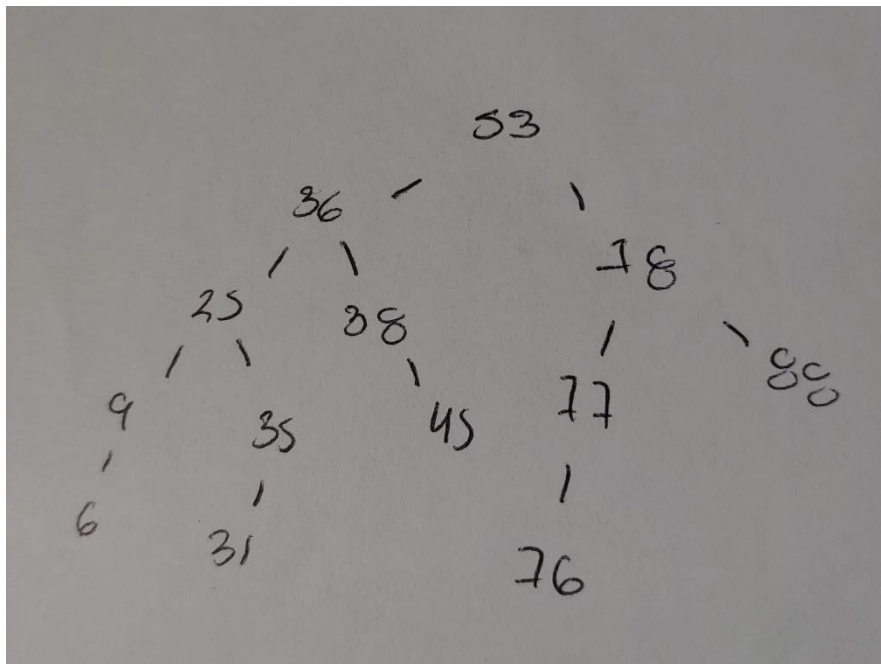 53
36
78
25
38
88
9
35
45
77
6
31
76